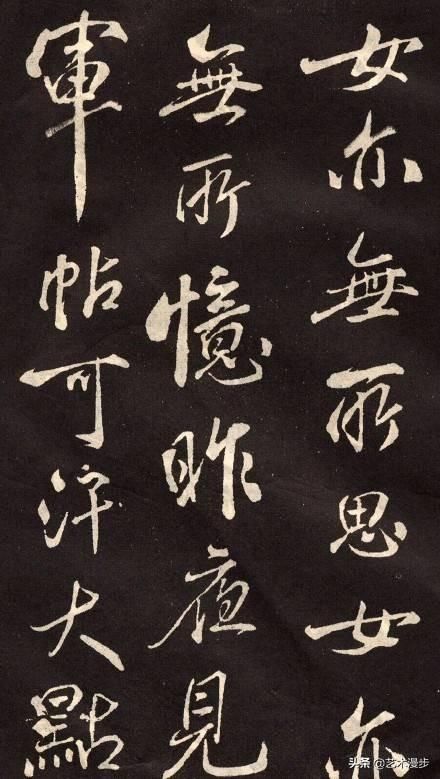 女亦無所思女亦
無所憶昨夜見
軍帖可汗大點
头条 @艺术漫步